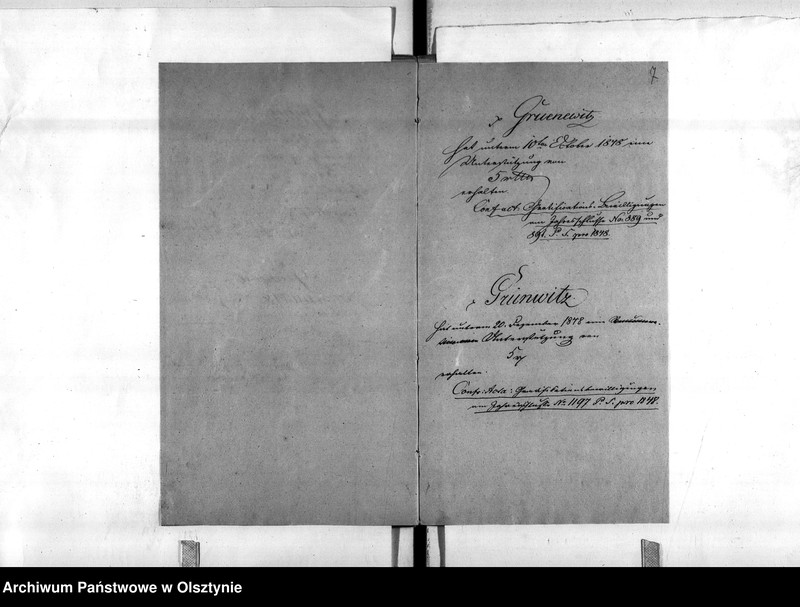 7
Gruenewitz
hat unterm 10ten October 1848 eine
Unterstützung von
5 rtlr
erhalten.
Conf. act. Gratifications-Bewilligungen
am Jahresschlusse No. 889 und
891. P. S. pro 1848.
Grünwitz
hat unterm 20. Dezember 1848 eine
Unterstützung von
5 r
erhalten.
Confr. Acta: Gratifikationsbewilligungen
am Jahresschluß No 1197 P. S. pro 1848.
Archiwum Państwowe w Olsztynie